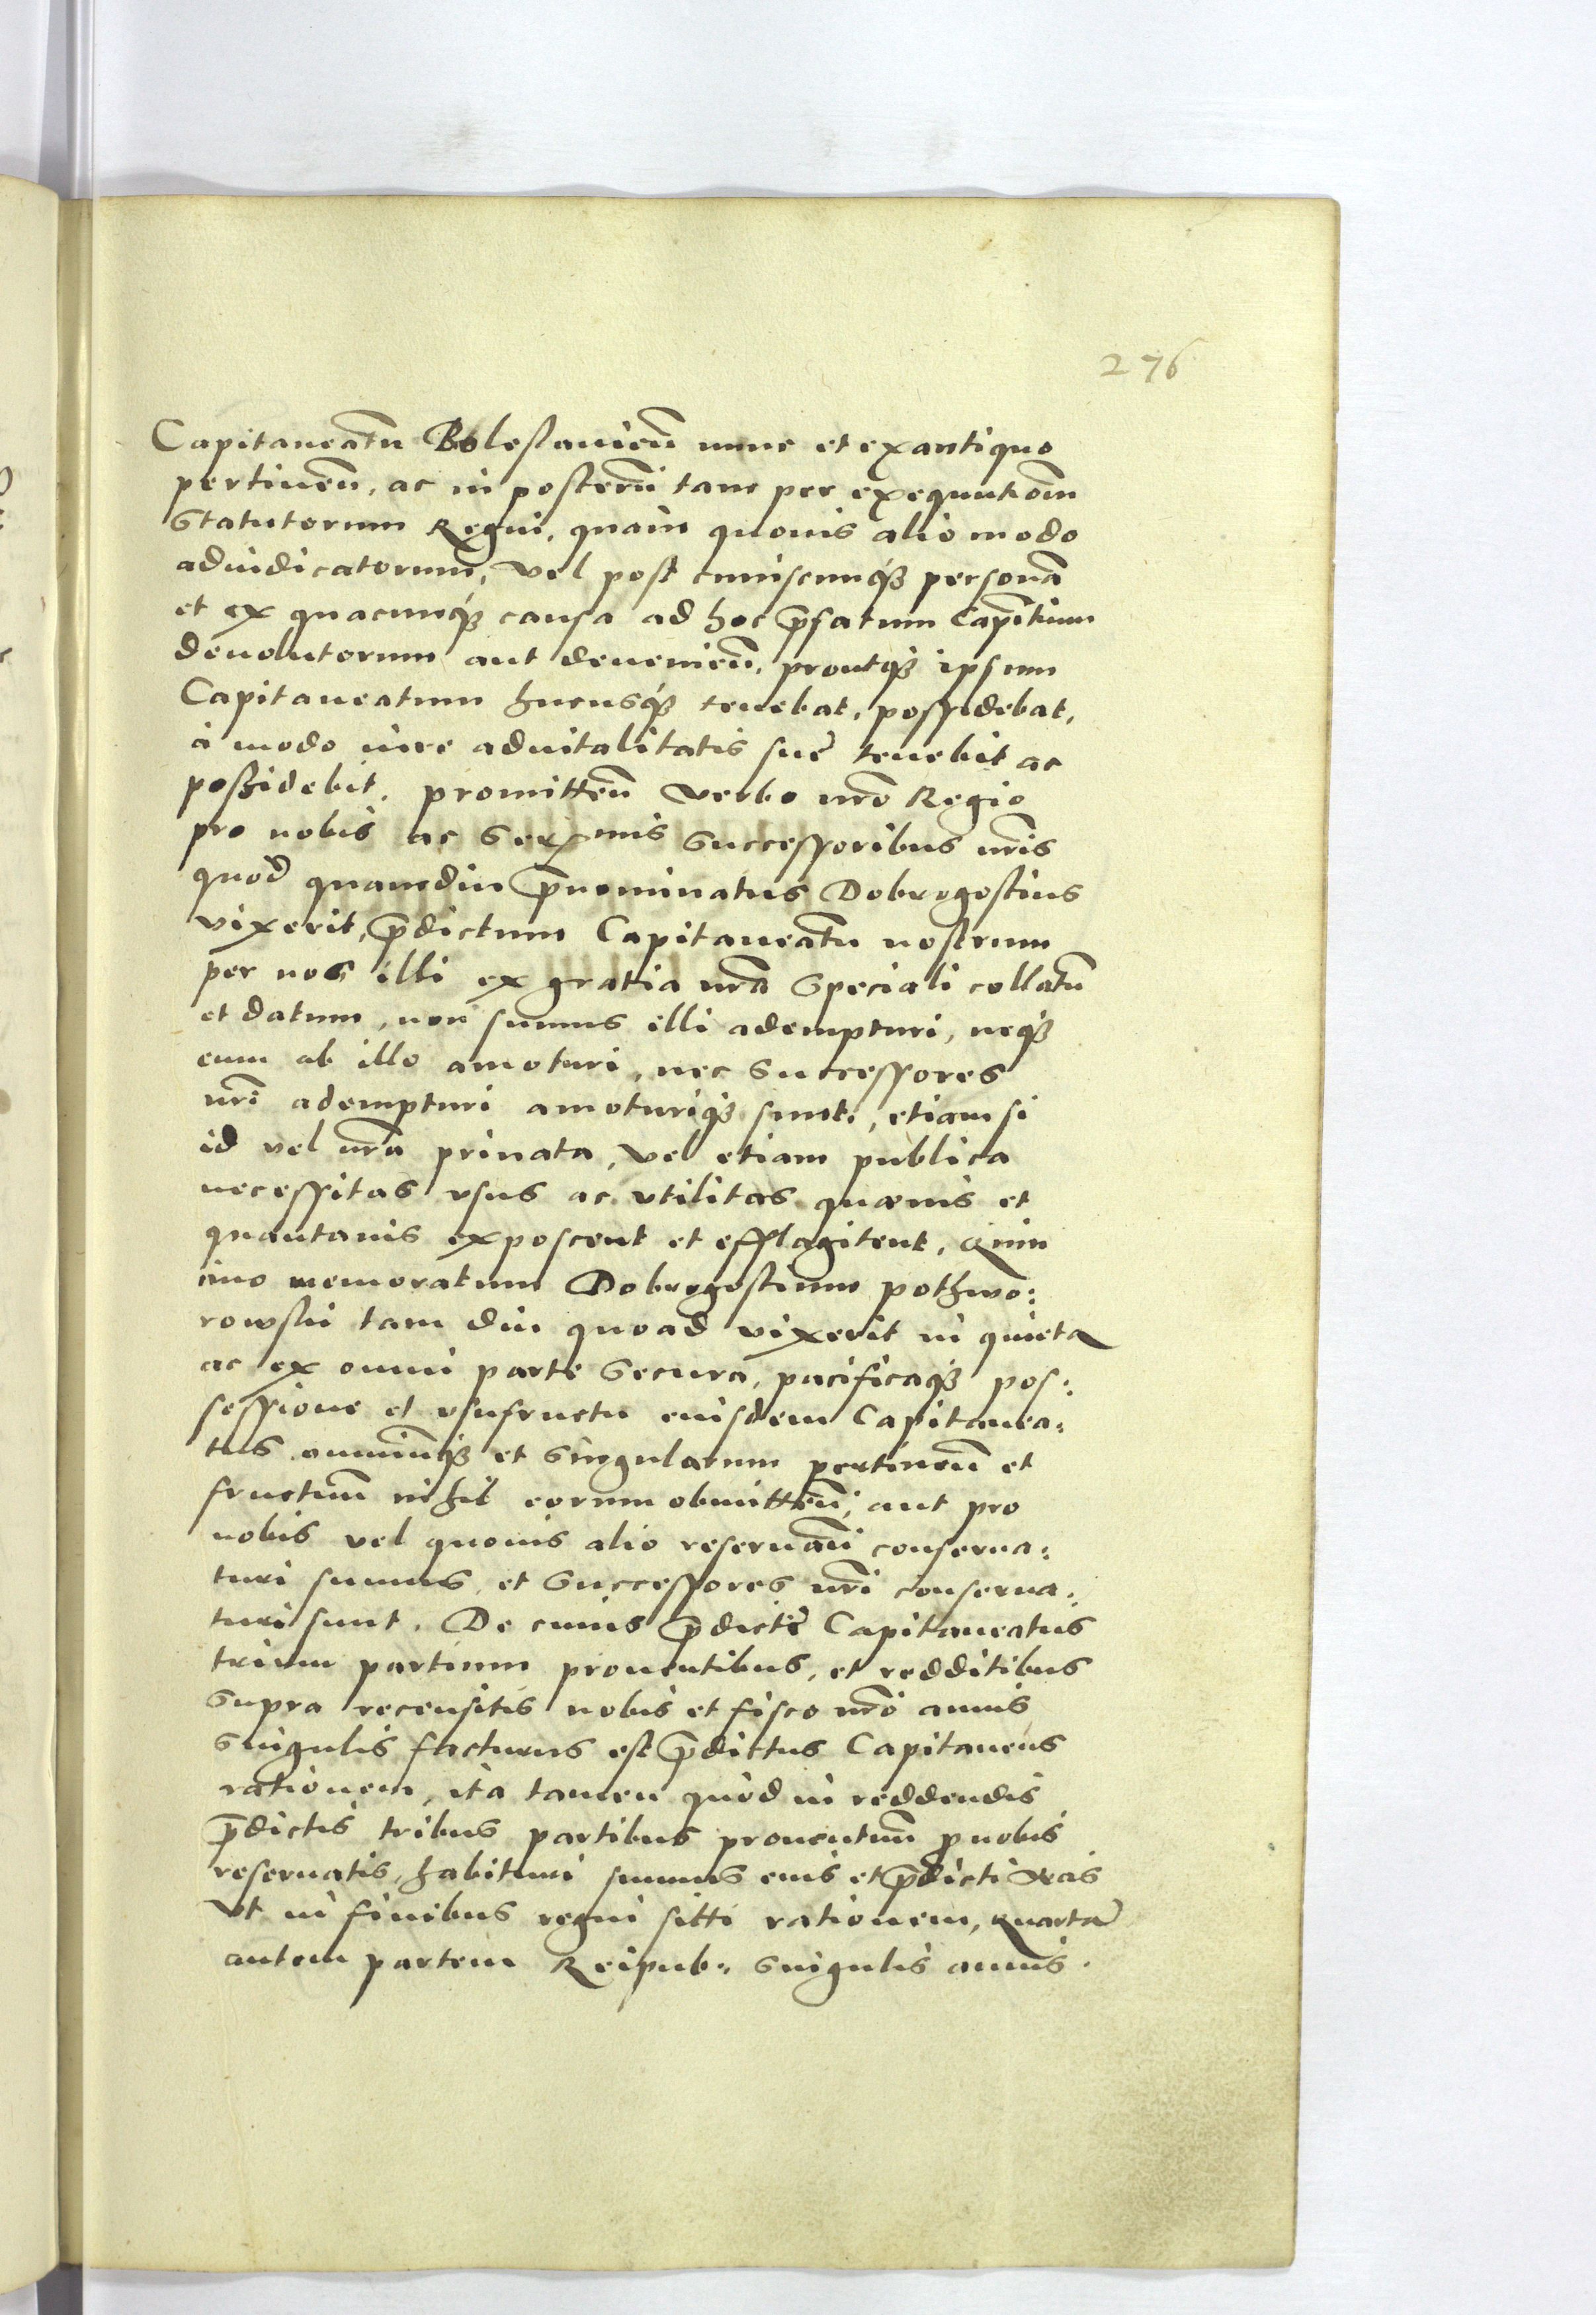 276
Capitaneatū Boleslavieñ nunc et ex antiquo
pertineñ, ac in posterū tam per exequutiōm
Statutorum Regni, quàm quovis alio modo
adiudicatorum, vel post cuiuscunq́ꝫ personā
et ex quacunq́ꝫ causa ad hoc p̃fatum Capītium
devolutorum aut devenieñ, proutq́ꝫ ipsum
Capitaneatum hucusq́ꝫ tenebat, possidebat,
à modo iure advitalitatis suę tenebit ac
possidebit, promitteñ verbo nr̃o Regio
pro nobis ac Serᵐⁱˢ Successoribus nr̃is
quòd quamdiu p̃nominatus Dobrogostius
vixerit, p̃dictum Capitaneatū nostrum
per nos illi ex gratia nr̃a Speciali collatū
et datum, non sumus illi adempturi, neq́ꝫ
eum ab illo amoturi, nec Successores
nr̃i adempturi amoturiq́ꝫ sunt, etiam si
id vel nr̃a privata, vel etiam publica
necessitas usus ac utilitas quævis et
quantavis exposcent et efflagitent, Quin
imo memoratum Dobrogostium pothwo:
rowski tam diu quoad vixerit in quieta
ac ex omni parte Secura, pacificaq́ꝫ pos:
sessione et usufructu eiusdem Capitanea:
tus omniūq́ꝫ et Singularum pertineñ et
fructuū nihil eorum obmitteñ, aut pro
nobis vel quovis alio reservañ conserva:
turi sumus, et Successores nr̃i conserva:
turi sunt. De cuius p̃dicti Capitaneatus
trium partium proventibus, et redditibus
Supra recensitis nobis et fisco nr̃o annis
Singulis facturus est p̃dictus Capitaneus
rationem, ita tamen quòd in reddendis
p̃dictis tribus partibus proventuū p nobis
reservatis, habituri sumus eius et p̃dicti
Ut in finibus regni sitti rationem, quartā
autem partem Reipub: Singulis annis.